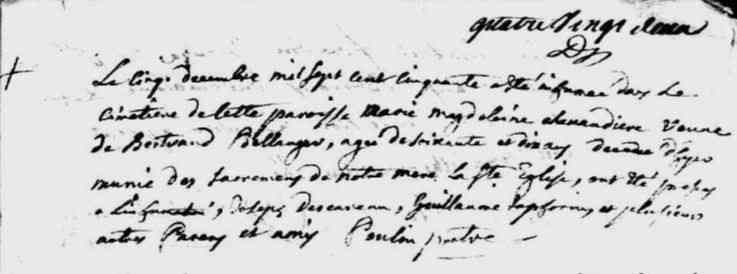 quatre Vingt deux
Le cinq decembre mil sept cent cinquante a été inhumee dans Le
cimetiere de cette paroisse marie magdeleine Veuve
de Bertrand Bellanger, agee de soixante et dix ans decedee
munie des sacremens de notre mere la Ste Eglise, ont été presens
a L'inhumation, Joseph, Guillaume et plusieurs
autres Parens et amis Poulin pretre